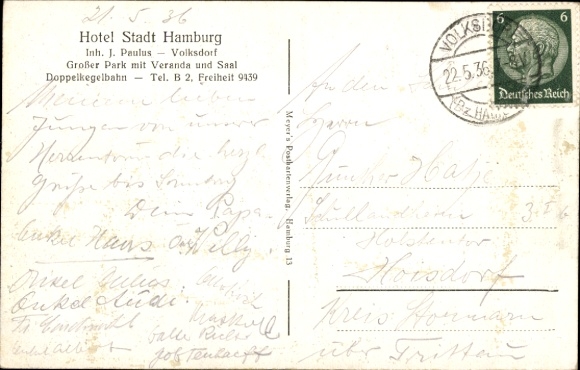 21.5.36
Hotel Stadt Hamburg
Inh. J. Paulus – Volksdorf
Großer Park mit Veranda und Saal
Doppelkegelbahn – Tel. B 2, Freiheit 9439
Meinem lieben
Jungen von unserer
Herrentour die herzl.
Grüße bis Sonntag
Dein Papa.
Onkel Hans Willy.
Onkel Julius
Onkel Rudi
Onkel Albert
Meyer's Postkartenverlag, Hamburg 13
VOLKSDORF
22.5.36
(Bz. HAMBURG)
6 6
Deutsches Reich
An den
Herrn
Günther Hatje
Schullandheim
Holstentor
Hoisdorf
Kreis Stormarn
über Trittau